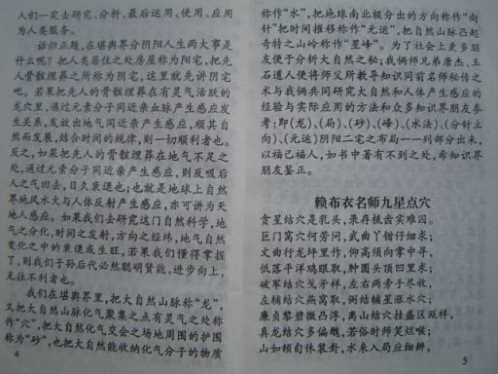 人们一定去研究、分析、最后运用、使用、应用
为人类服务。
话归正题,在堪舆界分阴阳人生两大事是
什么呢?把人类居住之处房屋称为阳宅,把先
人骨骸埋葬之所称为阴宅,这里就先讲阴宅
吧。若果把先人的骨骸埋葬在有灵气活跃的
龙穴里,通过元素分子同近亲血脉产生感应发
生关系,发放出地气同近亲产生感应,顺其自
然而发展,结合时间的规律,则一切顺利者也。
反之,如果把先人的骨骸埋葬在地气不足之
处,通过元素分子同近亲产生感应,则反吸后
人之气回去,日久衰退也;也就是地球上自然
界地风水火与人体反射产生感应,亦可讲为天
地人感应。如果我们去研究这门自然科学,地
气之分化,时间之发射,方向之经纬,地气自然
变化之中的衰淒或生旺,若果我们懂得掌握
了,则我们子孙后代必然聪明贤能,进步向上,
无往不利者也。
我们在堪舆界里,把大自然山脉称“龙”,
又把大自然山脉化气聚集之点有灵气之处称
作“穴”,把大自然化气交会之场地周围的护围
称为“砂”,也把大自然能收纳化气分子的物质
4
称作“水”,把地球南北极分出的方向称作“向
针”把时间推移称作“元运”,把自然山脉凸起
奇特之山岭称作“星峰”。为了社会上更多朋
友便于分析大自然之秘;我俩师兄弟唐杰、王
石道人便将师父所教导知识同前名师秘传之
术与我俩共同研究大自然和人体产生感应的
经验与实际应用的方法和众多知识界朋友参
考;即(龙)、(局)、(砂)、(峰)、(水法)、(分针立
向)、(元运)阴阳二宅之布局一一列部分出来,
以福己福人,如书中著有不到之处,希知识界
朋友鉴正。
赖布衣名师九星点穴
贪星结穴是乳头,禄存梳齿实难因。
巨门窝穴何劳问,武曲丫钳仔细求;
文曲行龙坪里作,仰高须向掌中寻,
低落平洋鸡距取,肿圆头顶四里求;
破军结穴戈矛样,左右两旁子尽收,
左辅结穴燕窝取,弼结辅星涨水穴;
廉贞犁鐴微凸浮,离山结穴挂盏区跃样,
真龙结穴多偏魑,若俗时师笑烂喉;
山如倾卸休裴卦,水来入局应细辨。
5